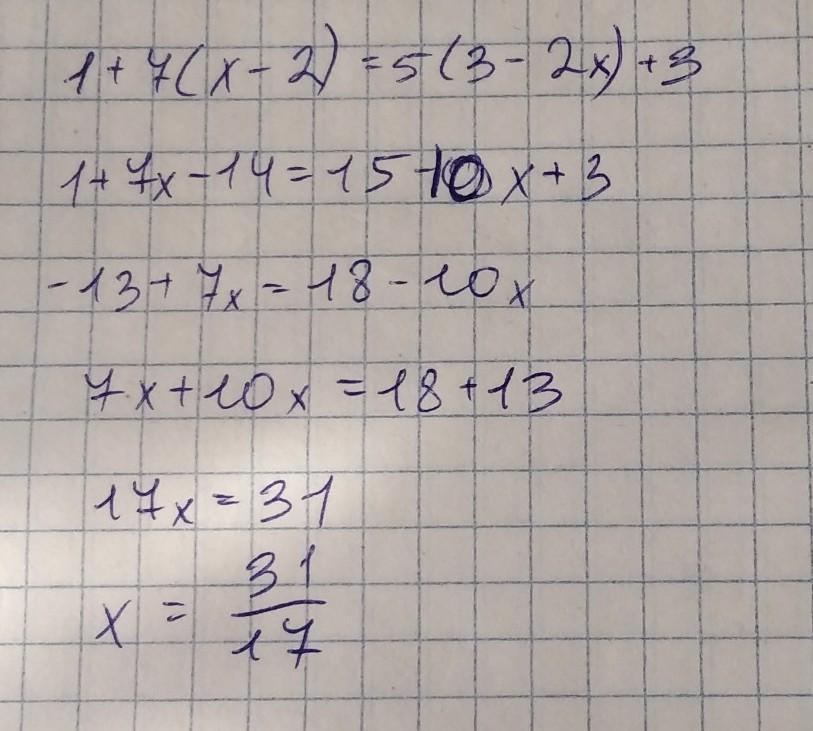 1+7(x-2)=5(3-2x)+3
1+7x-14=15-10x+3
-13+7x=18-10x
7x+10x=18+13
17x=31
x=31/17